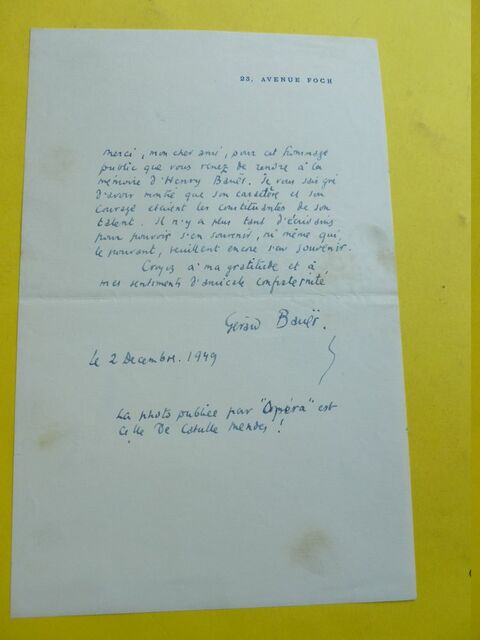 23, AVENUE FOCH
Merci, mon cher ami, pour cet hommage
public que vous venez de rendre à la
mémoire d'Henry Bauër. Je vous sais gré
d'avoir montré que son caractère et son
courage étaient les constituantes de son
talent. Il n'y a plus tant d'écrivains
pour pouvoir s'en souvenir, ni même qui,
le pouvant, veuillent encore s'en souvenir.
Croyez à ma gratitude et à
mes sentiments d'amicale confraternité
Gérard Bauër.
Le 2 Decembre. 1949
La photo publiée par "Opéra" est
celle De Catulle Mendes !